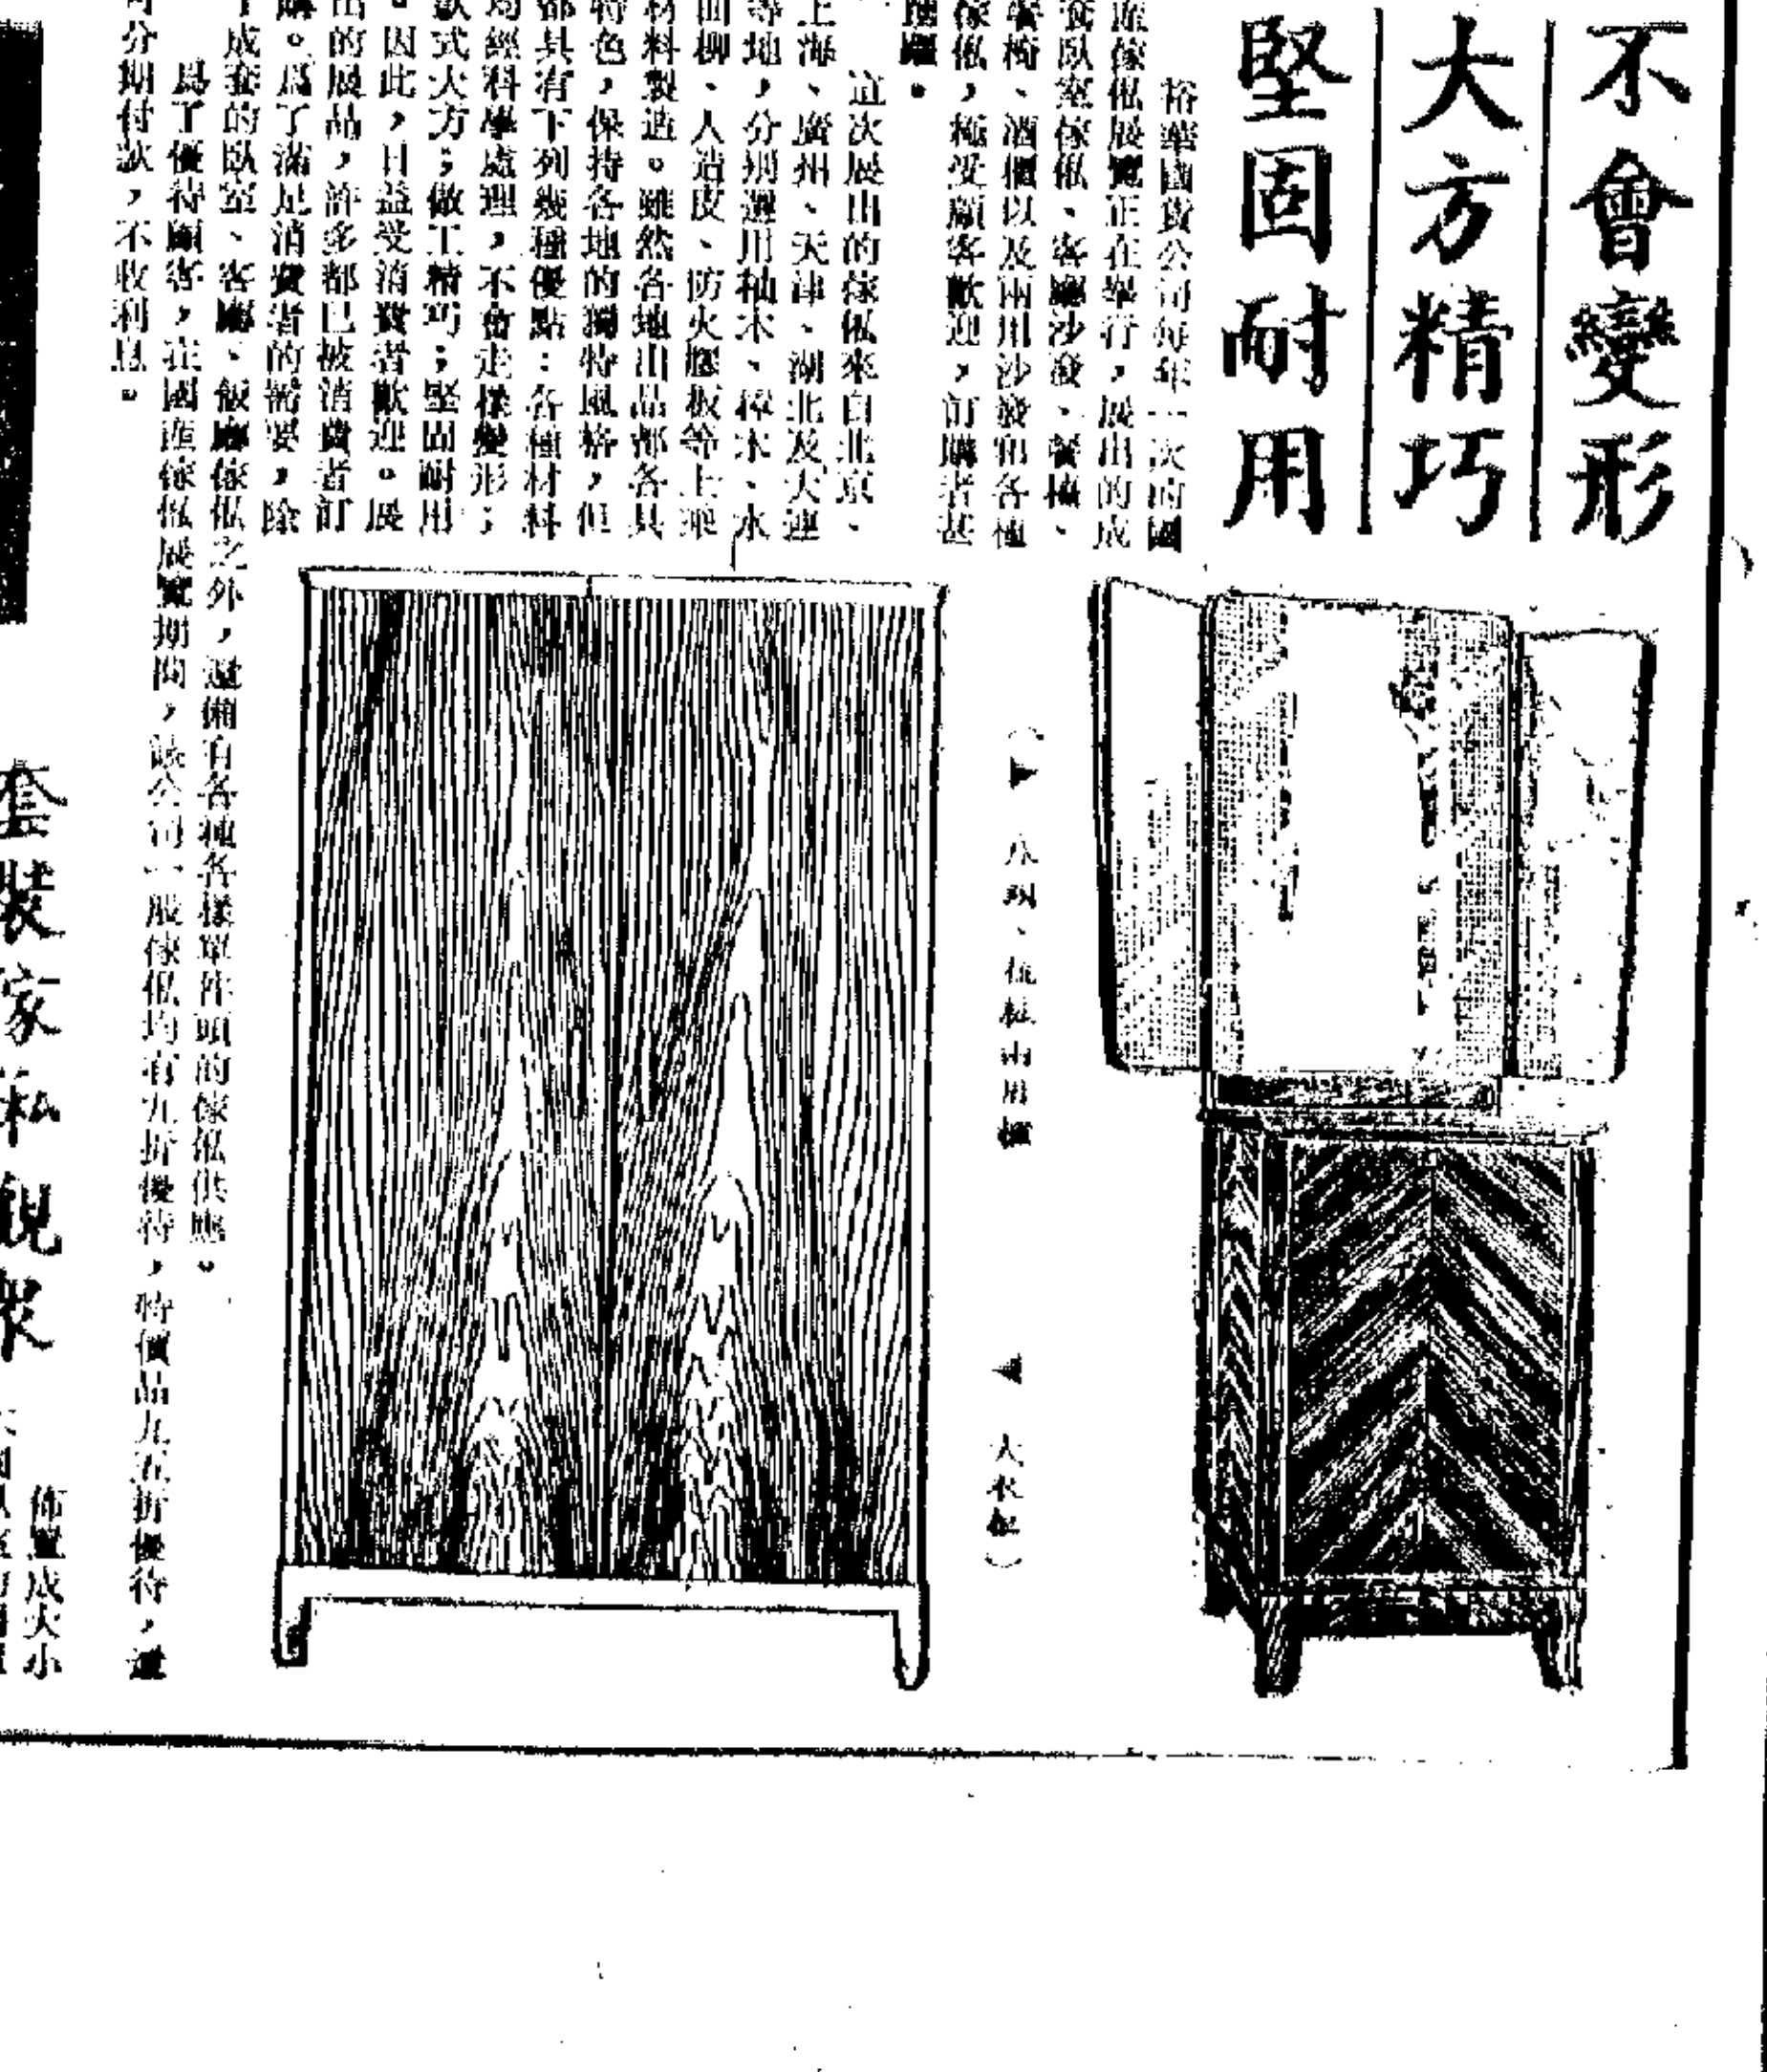 不會變形
大方精巧
堅固耐用
裕華國貨公司每年一次的國
產傢俬展覽正在舉行，展出的成
套臥室傢俬、客廳沙發、餐檯、
餐椅、酒櫃以及兩用沙發和各種
傢俬，極受顧客歡迎，訂購者甚
踴躍。
這次展出的傢俬來自北京、
上海、廣州、天津、湖北及大連
等地，分別選用柚木、樟木、水
曲柳、人造皮、防火膠板等上乘
材料製造。雖然各地出品都各具
特色，保持各地的獨特風格，但
都具有下列幾種優點：各種材料
均經科學處理，不會走樣變形；
款式大方；做工精巧；堅固耐用
。因此，日益受消費者歡迎。展
出的展品，許多都已被消費者訂
購。爲了滿足消費者的需要，除
了成套的臥室、客廳、飯廳傢俬之外，還備有各種各樣單件頭的傢俬供應。
爲了優待顧客，在國產傢俬展覽期間，該公司一般傢俬均有九折優待，特價品九五折優待，還
可分期付款，不收利息。
大衣柜）
套裝家私靚家
佈置成大小